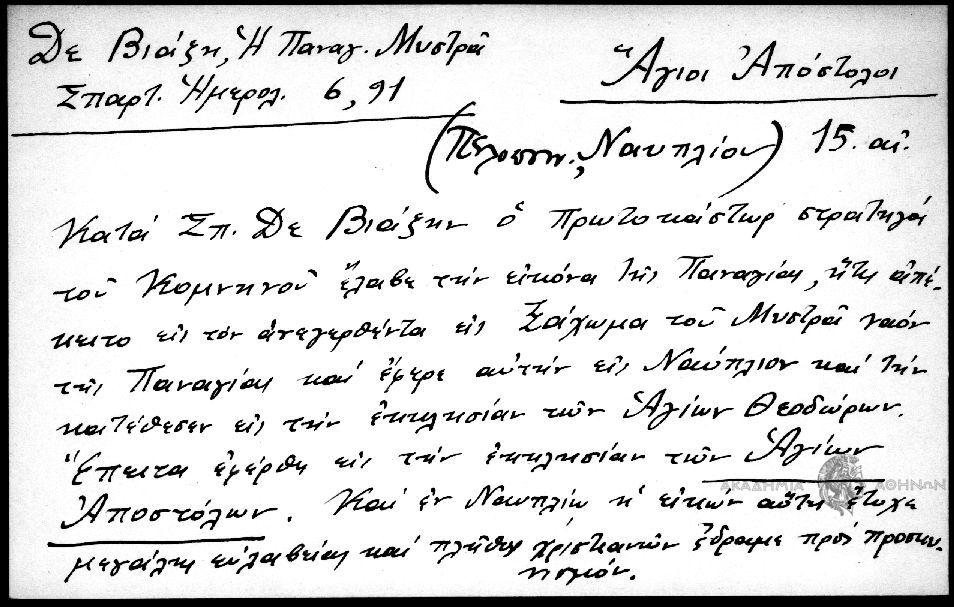 Δε Βιάζη, Ἡ Παναγ. Μυστρᾶ
Σπαρτ. Ἡμερολ. 6, 91
Ἅγιοι Ἀπόστολοι
(Πελοπον., Ναυπλίου) 15. αἰ.
Κατά Σπ. Δε Βιάζην ὁ πρωτοκάστωρ στρατηγός
τοῦ Κομνηνοῦ ἔλαβε τήν εἰκόνα τῆς Παναγίας, ἥτις ἀπέ-
κειτο εἰς τόν ἀνεγερθέντα εἰς τοῦ Μυστρᾶ ναόν
τῆς Παναγίας καί ἔφερε αὐτήν εἰς Ναύπλιον καί τήν
κατέθεσεν εἰς τήν ἐκκλησίαν τῶν Ἁγίων Θεοδώρων.
Ἔπειτα ἐφέρθη εἰς τήν ἐκκλησίαν τῶν Ἁγίων
Ἀποστόλων. Καί ἐν Ναυπλίῳ ἡ εἰκών αὕτη ἔτυχε
μεγάλης εὐλαβείας καί πλῆθος χριστιανῶν ἔδραμε πρός προσκυ-
νησμόν.
ΑΚΑΔΗΜΙΑ ΑΘΗΝΩΝ